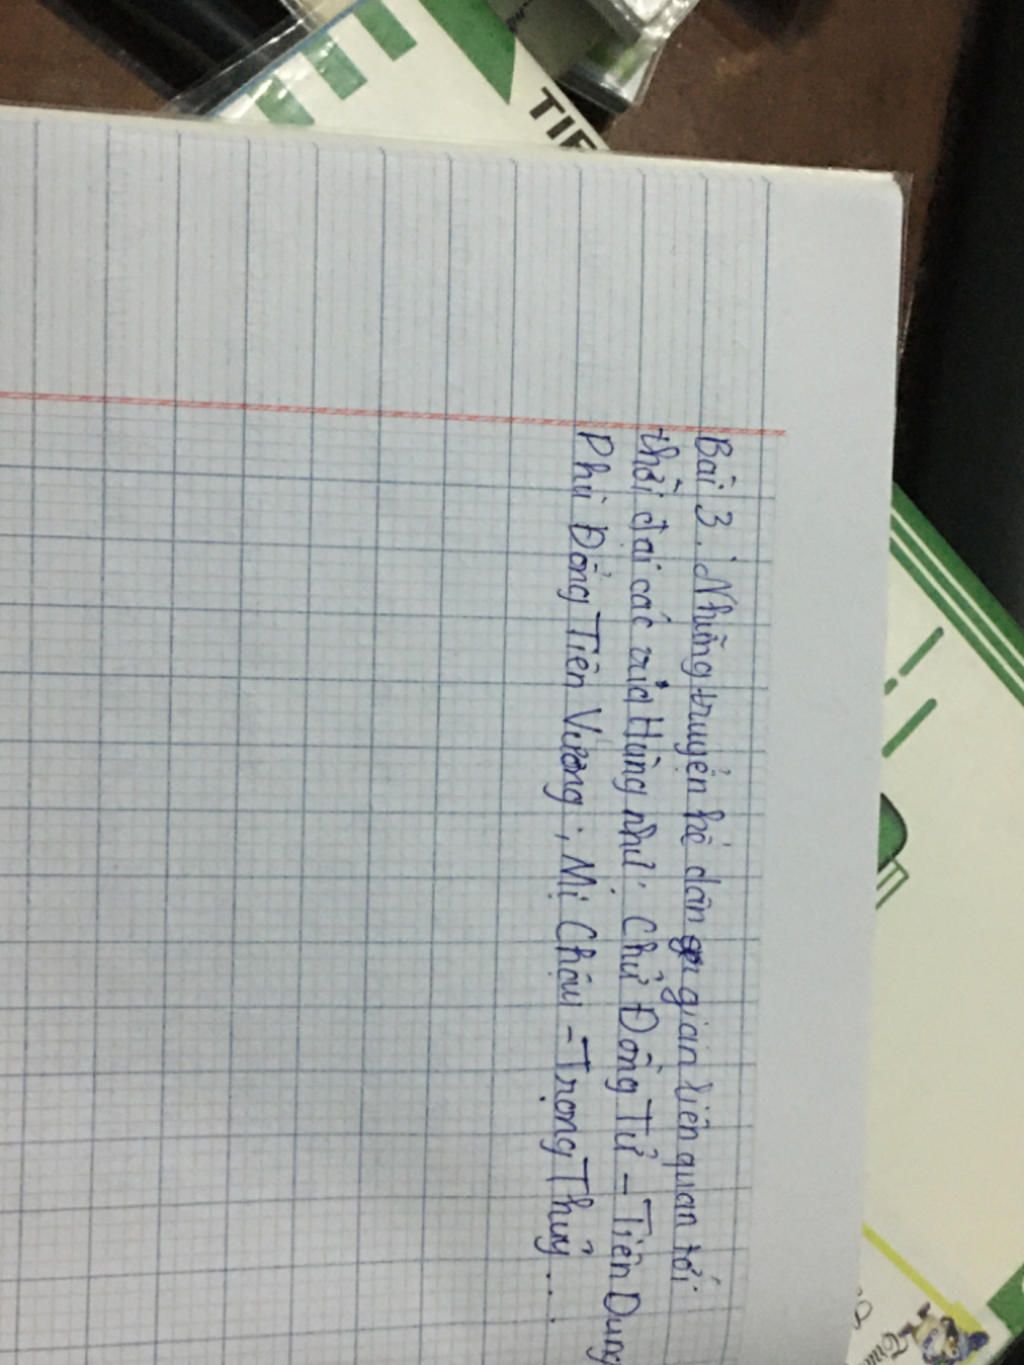 Bài 3. Những truyện kể dân gian liên quan tới
thời đại các vua Hùng như: Chử Đồng Tử - Tiên Dung
Phù Đổng Tiên Vương, Mị Châu - Trọng Thủy...